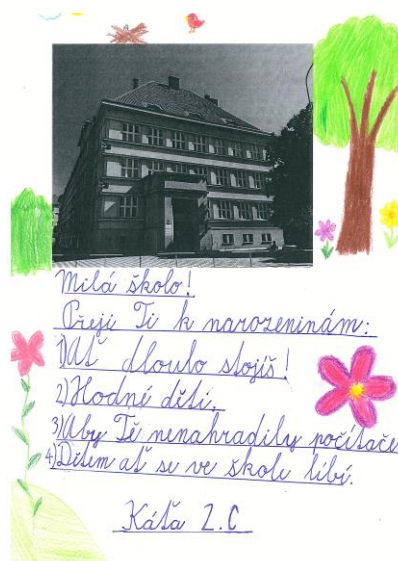 Milá školo!
Přeji Ti k narozeninám:
1) Ať dlouho stojíš!
2) Hodné děti.
3) Aby Tě nenahradily počítače
4) Dětem ať se ve škole líbí.
Káťa 2.C